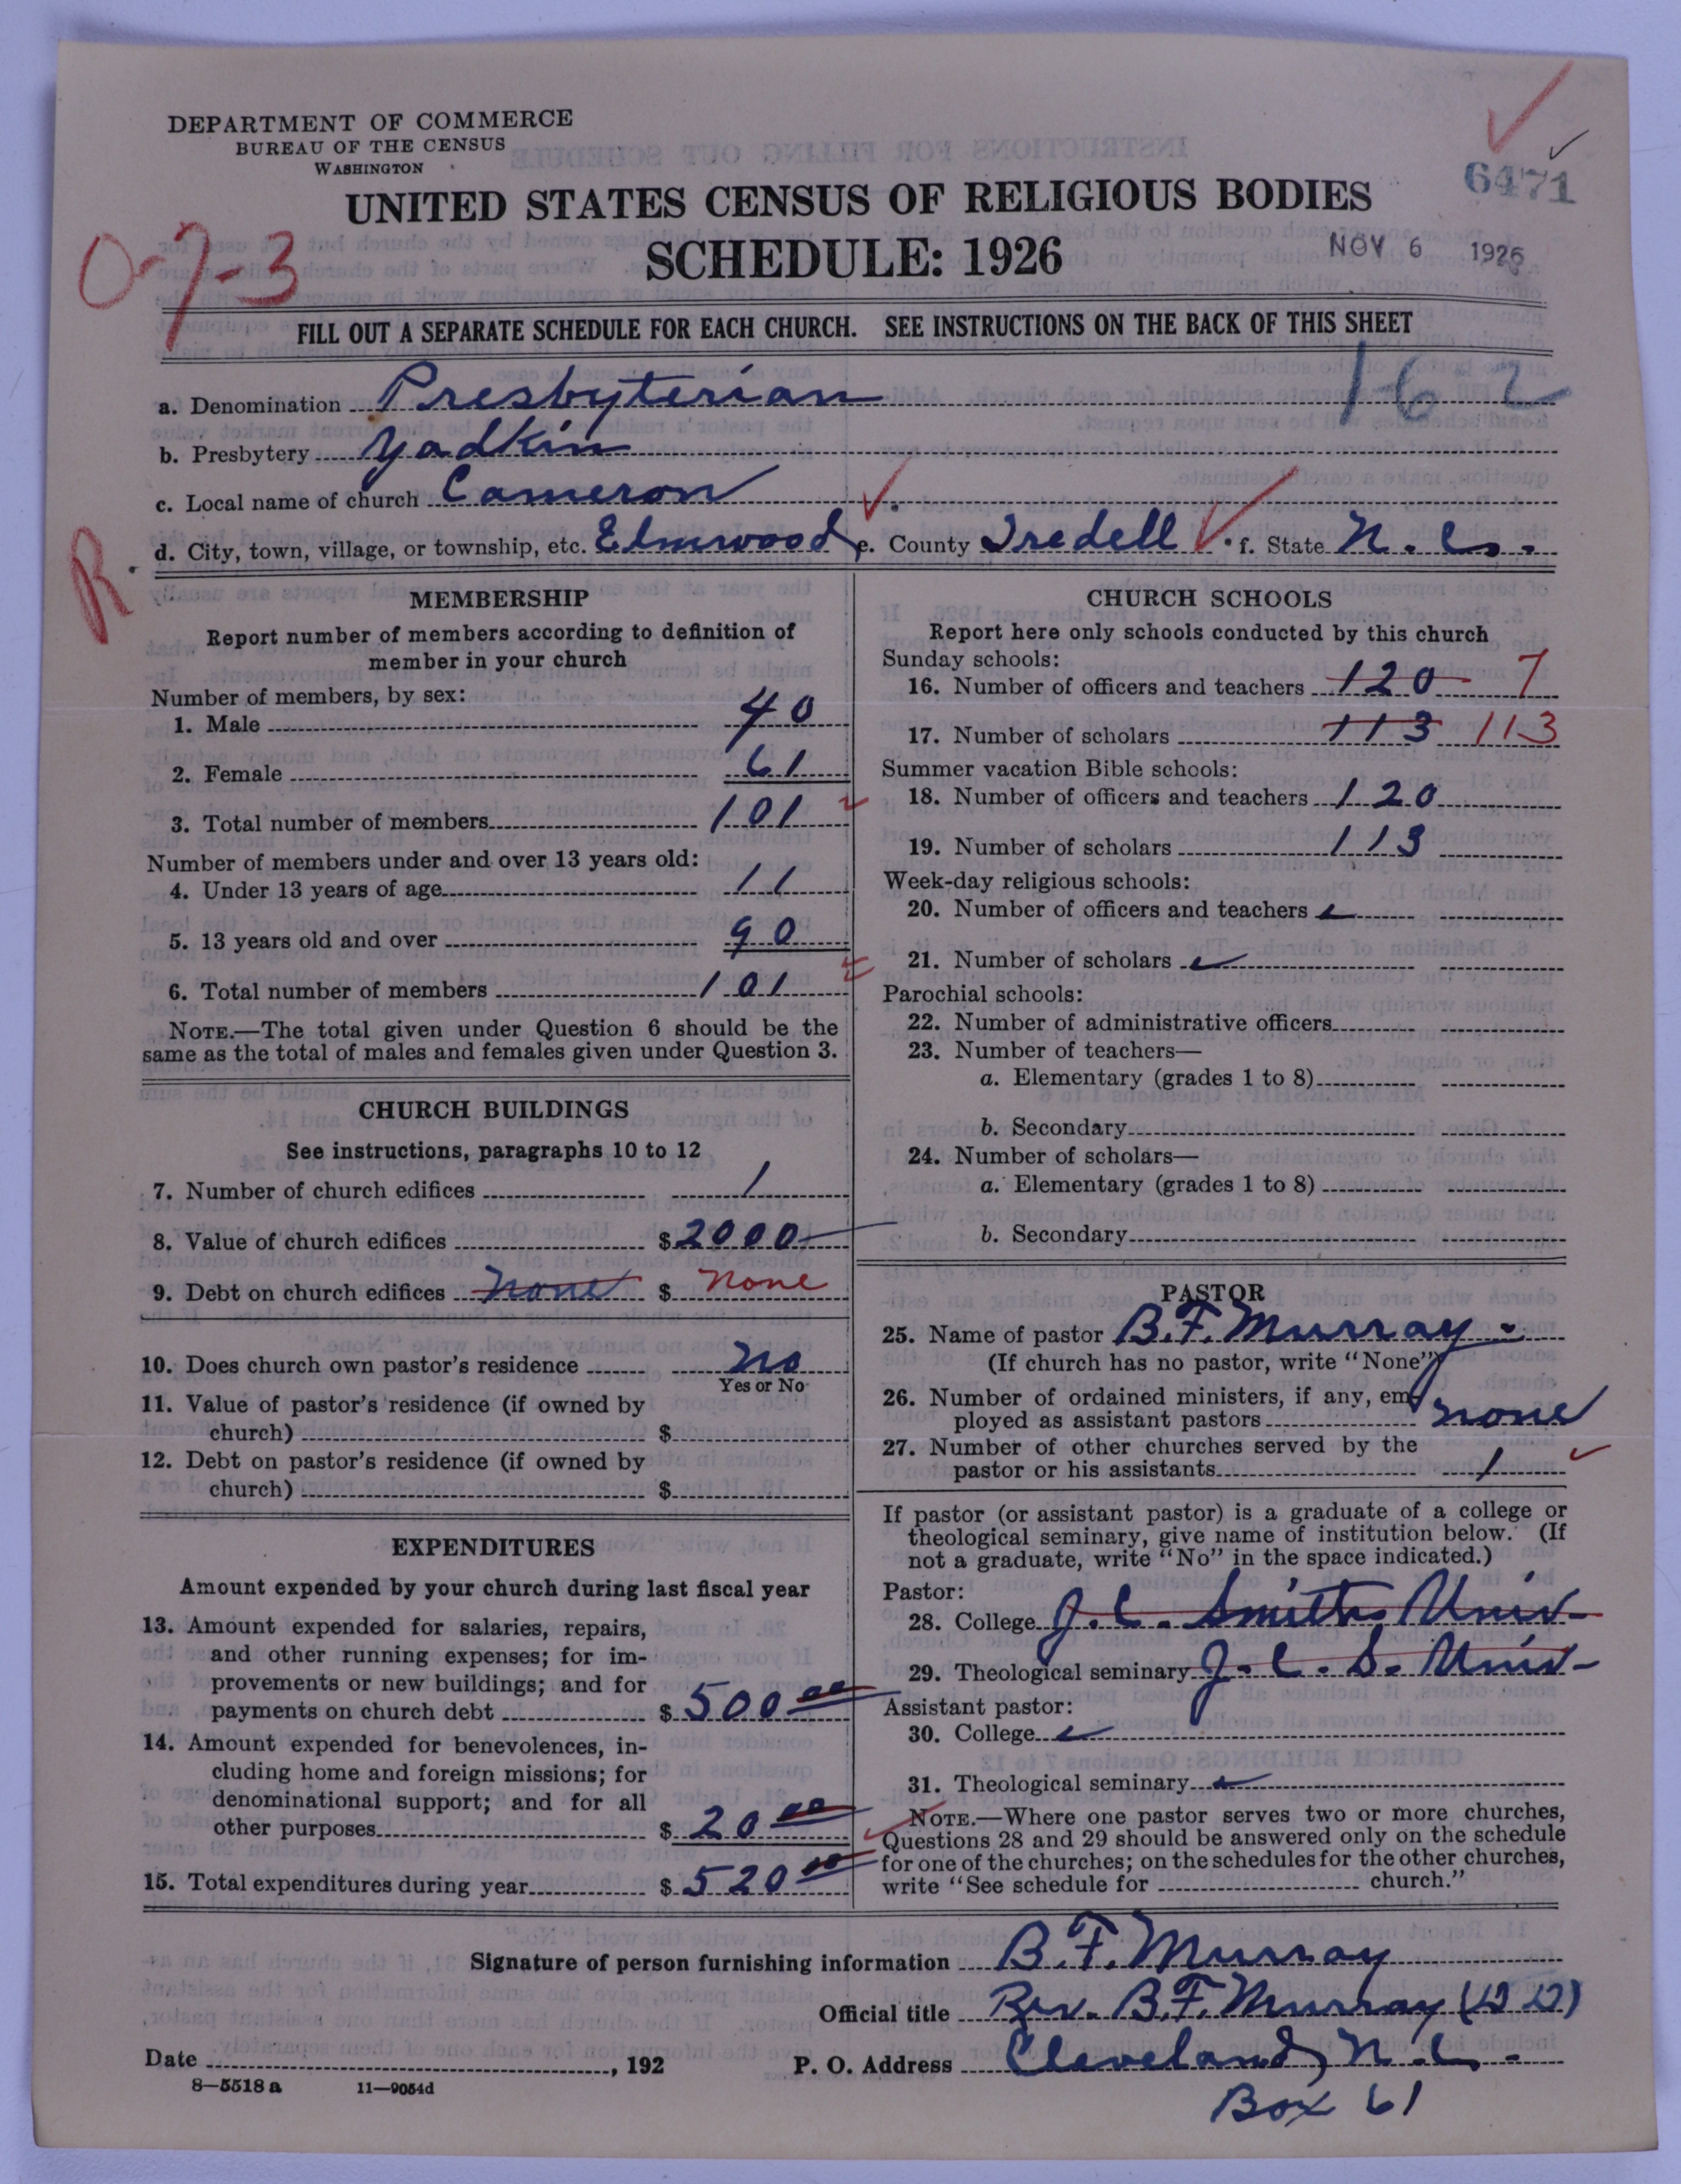 DEPARTMENT OF COMMERCE
BUREAU OF THE CENSUS
WASHINGTON
UNITED STATES CENSUS OF RELIGIOUS BODIES
6471
SCHEDULE: 1926
NOV 6 1926
0-7-3
FILL OUT A SEPARATE SCHEDULE FOR EACH CHURCH. SEE INSTRUCTIONS ON THE BACK OF THIS SHEET
162
a. Denomination Presbyterian
b. Presbytery Yadkin
c. Local name of church Cameron
R
d. City, town, village, or township, etc. Elmwood, e. County Iredell f. State N. C.
MEMBERSHIP
Report number of members according to definition of
member in your church
Number of members, by sex:
1. Male 40
2. Female 61
3. Total number of members 101
Number of members under and over 13 years old:
4. Under 13 years of age 11
5. 13 years old and over 90
6. Total number of members 101
NOTE.—The total given under Question 6 should be the
same as the total of males and females given under Question 3.
CHURCH BUILDINGS
See instructions, paragraphs 10 to 12
7. Number of church edifices 1
8. Value of church edifices $ 2000
9. Debt on church edifices none $ none
10. Does church own pastor's residence no
Yes or No
11. Value of pastor's residence (if owned by
church) $
12. Debt on pastor's residence (if owned by
church) $
EXPENDITURES
Amount expended by your church during last fiscal year
13. Amount expended for salaries, repairs,
and other running expenses; for im-
provements or new buildings; and for
payments on church debt $ 500 00
14. Amount expended for benevolences, in-
cluding home and foreign missions; for
denominational support; and for all
other purposes $ 20 00
15. Total expenditures during year $ 520 00
CHURCH SCHOOLS
Report here only schools conducted by this church
Sunday schools:
16. Number of officers and teachers 120 7
17. Number of scholars 113 113
Summer vacation Bible schools:
18. Number of officers and teachers 120
19. Number of scholars 113
Week-day religious schools:
20. Number of officers and teachers
21. Number of scholars
Parochial schools:
22. Number of administrative officers
23. Number of teachers—
a. Elementary (grades 1 to 8)
b. Secondary
24. Number of scholars—
a. Elementary (grades 1 to 8)
b. Secondary
PASTOR
25. Name of pastor B. F. Murray
(If church has no pastor, write "None")
26. Number of ordained ministers, if any, em-
ployed as assistant pastors none
27. Number of other churches served by the
pastor or his assistants 1
If pastor (or assistant pastor) is a graduate of a college or
theological seminary, give name of institution below. (If
not a graduate, write "No" in the space indicated.)
Pastor:
28. College J. C. Smith Univ-
29. Theological seminary J. C. S. Univ-
Assistant pastor:
30. College
31. Theological seminary
NOTE.—Where one pastor serves two or more churches,
Questions 28 and 29 should be answered only on the schedule
for one of the churches; on the schedules for the other churches,
write "See schedule for church."
Signature of person furnishing information B. F. Murray
Official title Rev. B. F. Murray (D D)
Date , 192 P. O. Address Cleveland, N. C.
Box 61
8—5518a 11—9054d